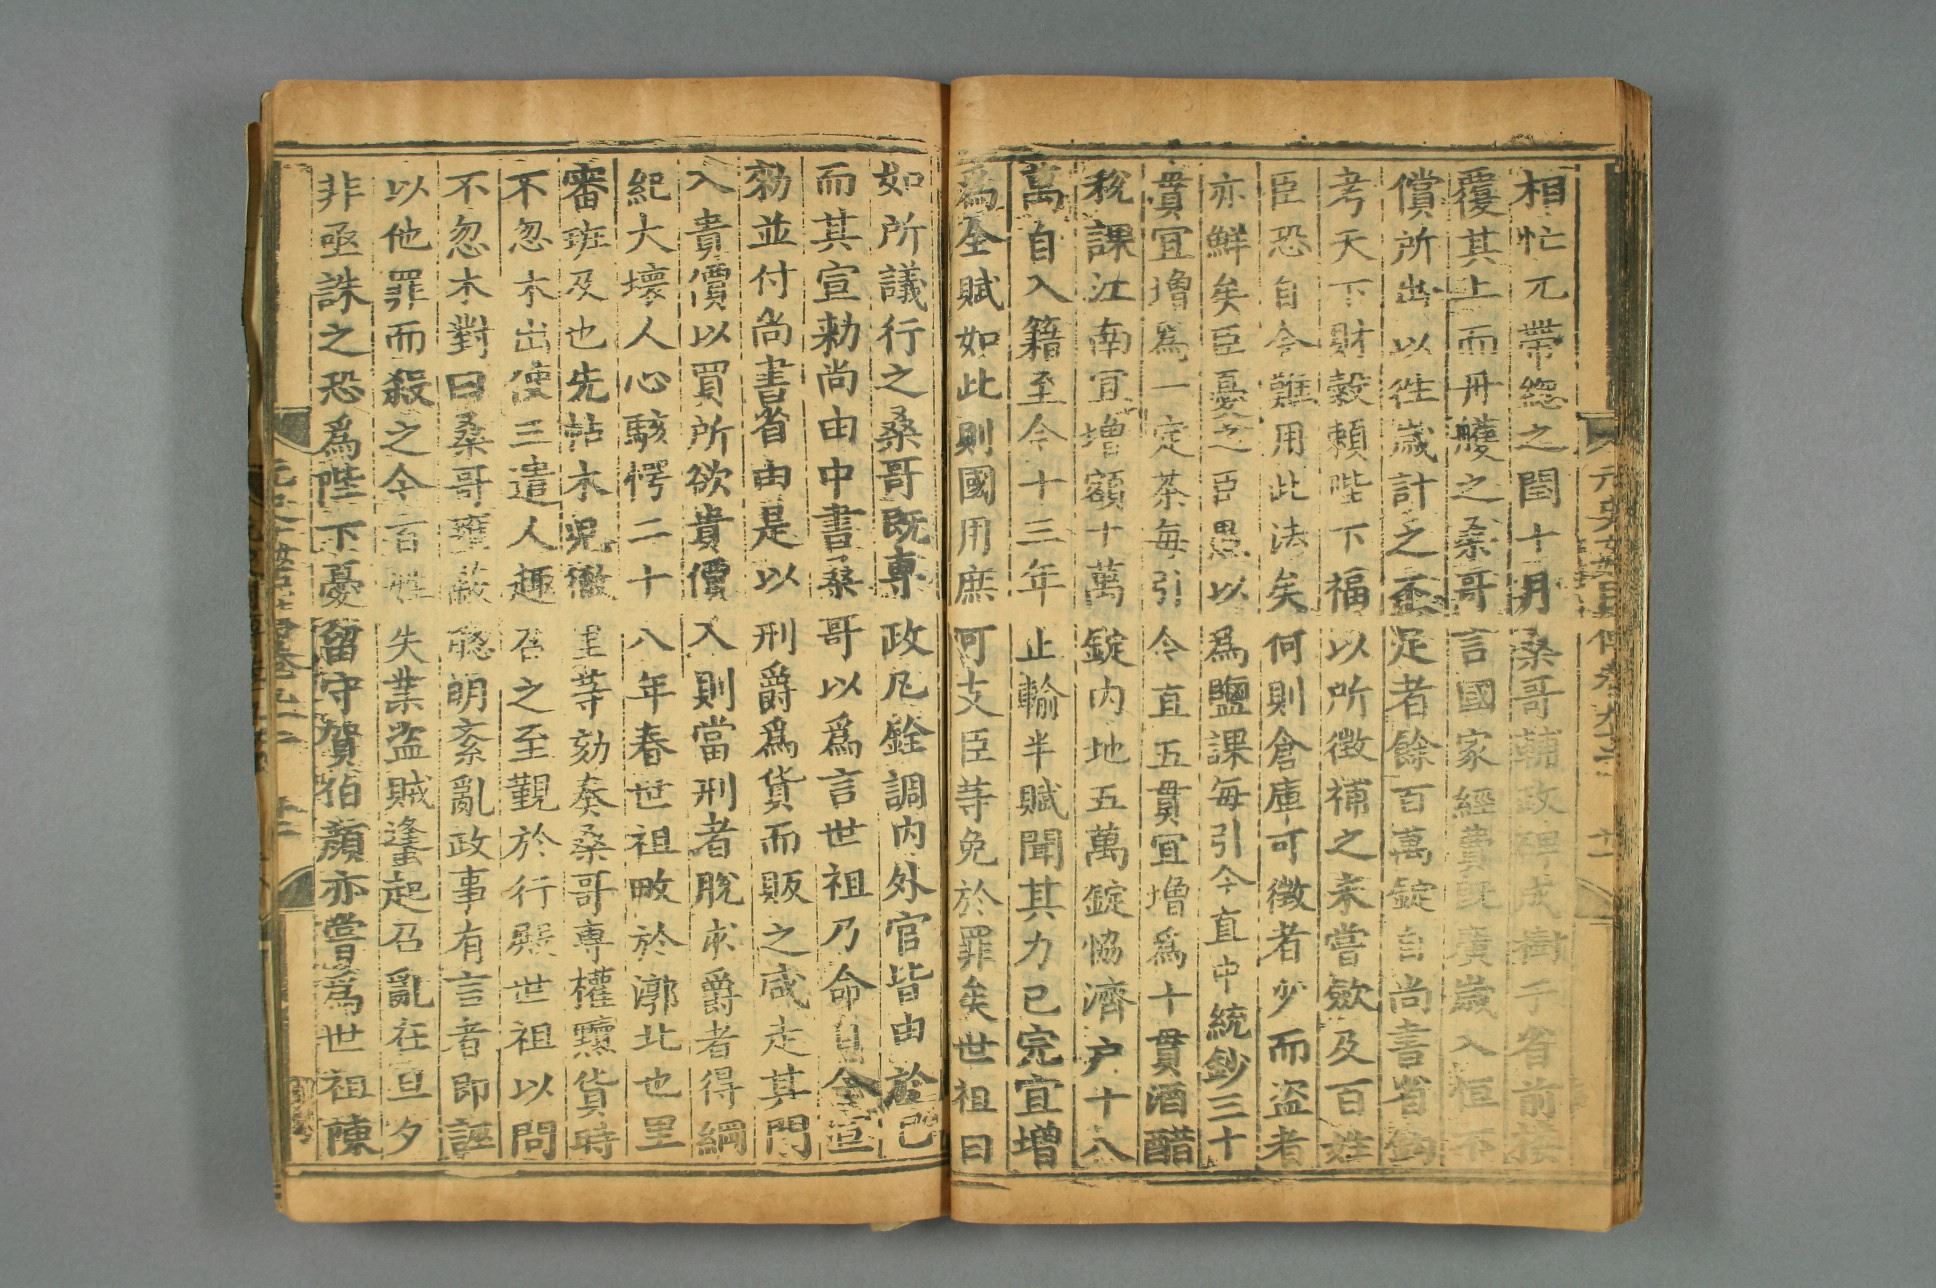 元史姦臣傳卷九十二 十一
相忙兀帶總之閏十月桑哥輔政碑成樹于省前樓
覆其上而丹雘之桑哥言國家經費既廣歲入恒不
償所出以徃歲計之不足者餘百萬錠自尚書省鈎
考天下財穀賴陛下福以所徵補之未嘗歛及百姓
臣恐自今難用此法矣何則倉庫可徵者少而盜者
亦鮮矣臣憂之臣愚以爲鹽課每引今直中統鈔三十
貫宜增爲一定茶每引今直五貫宜增爲十貫酒醋
稅課江南宜增額十萬錠內地五萬錠恊濟户十八
萬自入籍至今十三年止輸半賦聞其力已完宜增
爲全賦如此則國用庶可支臣等免於罪矣世祖曰
如所議行之桑哥既專政凡銓調內外官皆由於己
而其宣勑尚由中書桑哥以爲言世祖乃命自今宣
勑並付尚書省由是以刑爵爲貨而販之咸走其門
入貴價以買所欲貴價入則當刑者脫求爵者得綱
紀大壞人心駭愕二十八年春世祖畋於漷北也里
審班及也先帖木兒徹里等劾奏桑哥專權黷貨時
不忽木出使三遣人趣召之至覲於行殿世祖以問
不忽木對曰桑哥壅蔽聰明紊亂政事有言者即誣
以他罪而殺之今百姓失業盜賊蠭起召亂在旦夕
非亟誅之恐爲陛下憂留守賀伯顏亦嘗爲世祖陳